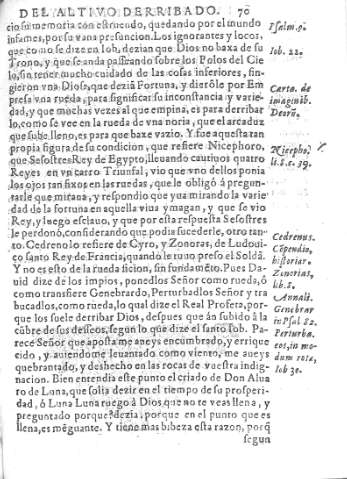 DEL ALTIVO DERRIBADO. 70
cio su memoria con estruendo, quedando por el mundo
infames, por su vana presuncion. Los ignorantes y locos,
que como se dize en Iob, dezian que Dios no baxa de su
Trono, y que se anda passeando sobre los Polos del Cie
lo, sin tener mucho cuidado de las cosas inferiores, fin-
gieron vna Diosa, que dezia Fortuna, y dierõle por Em
presa vna rueda, para significar su inconstancia y varie-
dad, y que muchas vezes al que empina, es para derribar
lo, como se vee en la rueda de vna noria, que el arcaduz
que sube lleno, es para que baxe vazio. Y fue aquesta tan
propia figura de su condicion, que refiere Nicephoro,
que Sesostres Rey de Egypto, lleuando cautiuos quatro
Reyes en vn carro Triunfal, vio que vno dellos ponia
los ojos tan fixos en las ruedas, que le obligó à pregun-
tarle que miraua, y respondio que yua mirando la varie
dad de la fortuna en aquella viua ymagen, y que se vio
Rey, y luego esclauo, y que por esta respuesta Sesostres
le perdonò, considerando que podia sucederle, otro tan-
to. Cedreno lo refiere de Cyro, y Zonoras, de Ludoui-
co santo Rey de Francia, quando le tuuo preso el Soldã.
Y no es esto de la rueda ficion, sin fundamẽto. Pues Da-
uid dize de los impios, ponedlos Señor como rueda, ò
como transfiere Genebrardo, Perturbadlos Señor y tra
bucadlos, como rueda, lo qual dize el Real Profera, por-
que los suele derribar Dios, despues que àn subido à la
cũbre de sus desseos, segun lo que dize el santo Iob. Pa-
rece Señor que aposta me aneys encumbrado, y errique
cido, y auiendome leuantado como viento, me aueys
quebrantado, y deshecho en las rocas de vuestra indig-
nacion. Bien entendia este punto el criado de Don Alua
ro de Luna, que solia dezir en el tiempo de su prosperi-
dad, ò Luna Luna ruego à Dios que no te veas llena, y
preguntado porque? dezia, porque en el punto que es
llena, es mẽguante. Y tiene mas biveza esta razon, porq̃
segun
Psalm. 9.
Iob. 22.
Carta. de
imaginib.
Deorũ.
Nicepho,
li. 8. c. 39.
Cedrenus.
Cõpendio,
historiar.
Zinorias,
lib. 8.
Annali.
Genebrar
in Psal 82
Perturba
eos, in mo
dum rotæ,
Iob 30.